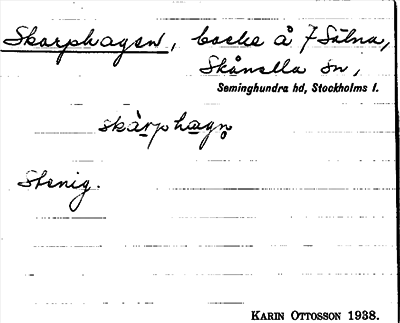 Skarphagen, backe å 7 Sälna,
Skånella sn,
Seminghundra hd, Stockholms l.
skàrphagn̥
Stenig.
KARIN OTTOSSON 1938.